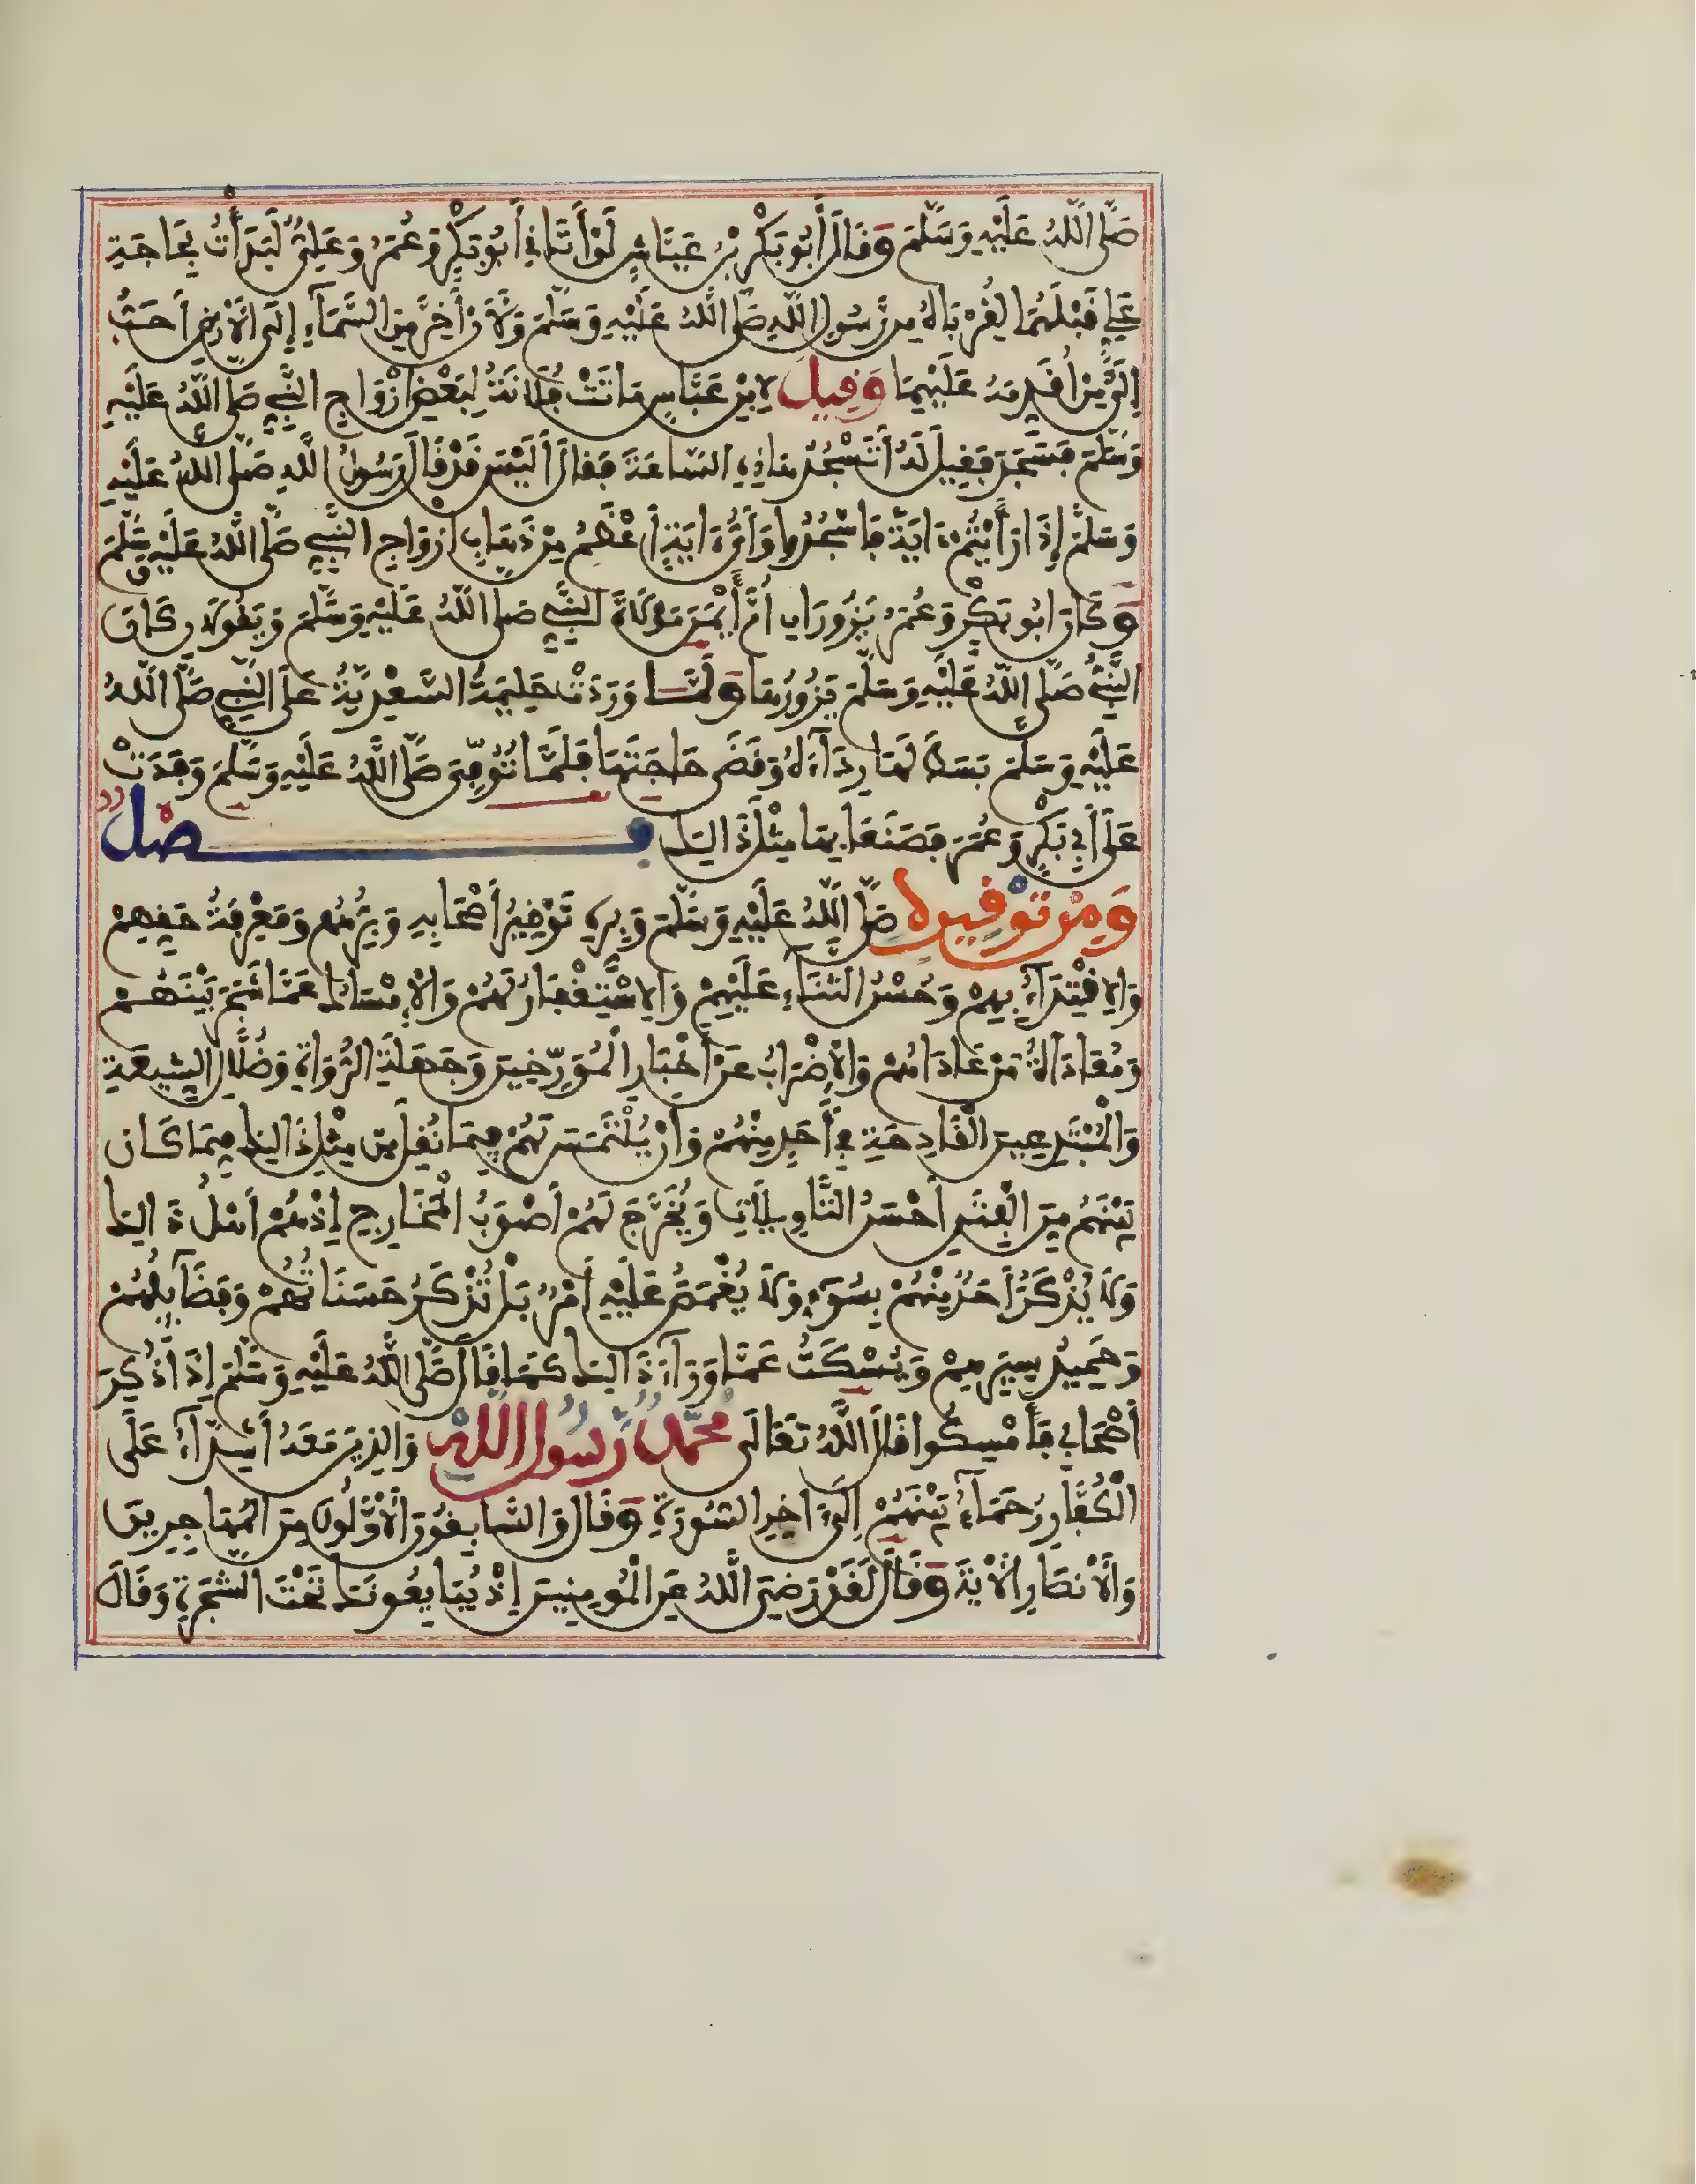 صَلَّى اللَّهُ عَلَيْهِ وَسَلَّمَ وَقَالَ أَبُو بَكْرِ بْنُ عَيَّاشٍ لَوْ أَتَانِي أَبُو بَكْرٍ وَعُمَرُ وَعَلِيٌّ لَبَدَأْتُ بِحَاجَةِ
عَلِيٍّ قَبْلَهُمَا لِقُرْبَاهُ مِن رَّسُولِ اللَّهِ صَلَّى اللَّهُ عَلَيْهِ وَسَلَّمَ وَلَأَنْ أَخِرَّ مِنَ السَّمَاءِ إِلَى الْأَرْضِ أَحَبُّ
إِلَيَّ مِنْ أُقَدِّمَهُ عَلَيْهِمَا وَقِيلَ لِابْنِ عَبَّاسٍ مَاتَتْ فُلَانَةُ لِبَعْضِ أَزْوَاجِ النَّبِيِّ صَلَّى اللَّهُ عَلَيْهِ
وَسَلَّمَ فَسَجَدَ فَقِيلَ لَهُ أَتَسْجُدُ هَاذِهِ السَّاعَةَ فَقَالَ أَلَيْسَ قَدْ قَالَ رَسُولُ اللَّهِ صَلَّى اللَّهُ عَلَيْهِ
وَسَلَّمَ إِذَا رَأَيْتُمْ ءَايَةً فَاسْجُدُوا وَأَيُّ ءَايَةٍ أَعْظَمُ مِنْ ذَهَابِ أَزْوَاجِ النَّبِيِّ صَلَّى اللَّهُ عَلَيْهِ وَسَلَّمَ
وَكَانَ أَبُو بَكْرٍ وَعُمَرُ يَزُورَانِ أُمَّ أَيْمَنَ مَوْلَاةَ النَّبِيِّ صَلَّى اللَّهُ عَلَيْهِ وَسَلَّمَ وَيَقُولَانِ كَانَ
النَّبِيُّ صَلَّى اللَّهُ عَلَيْهِ وَسَلَّمَ يَزُورُهَا وَلَمَّا وَرَدَتْ حَلِيمَةُ السَّعْدِيَّةُ عَلَى النَّبِيِّ صَلَّى اللَّهُ
عَلَيْهِ وَسَلَّمَ بَسَطَ لَهَا رِدَاءَهُ وَقَضَى حَاجَتَهَا فَلَمَّا تُوُفِّيَ صَلَّى اللَّهُ عَلَيْهِ وَسَلَّمَ وَفَدَتْ
عَلَى أَبِي بَكْرٍ وَعُمَرَ فَصَنَعَا بِهَا مِثْلَ ذَالِكَ فصل
وَمِنْ تَوْقِيرِهِ صَلَّى اللَّهُ عَلَيْهِ وَسَلَّمَ وَبِرِّهِ تَوْقِيرُ أَصْحَابِهِ وَبِرُّهُمْ وَمَعْرِفَةُ حَقِّهِمْ
وَالِاقْتِدَاءُ بِهِمْ وَحُسْنُ الثَّنَاءِ عَلَيْهِمْ وَالِاسْتِغْفَارُ لَهُمْ وَالْإِمْسَاكُ عَمَّا شَجَرَ بَيْنَهُمْ
وَمُعَادَاةُ مَنْ عَادَاهُمْ وَالْإِضْرَابُ عَنْ أَخْبَارِ الْمُؤَرِّخِينَ وَجَهَلَةِ الرُّوَاةِ وَضُلَّالِ الشِّيعَةِ
وَالْمُبْتَدِعِينَ الْقَادِحَةِ فِي أَحَدٍ مِنْهُمْ وَأَنْ يُلْتَمَسَ لَهُمْ فِيمَا نُقِلَ مِنْ مِثْلِ ذَالِكَ فِيمَا كَانَ
بَيْنَهُمْ مِنَ الْفِتَنِ أَحْسَنُ التَّأْوِيلَاتِ وَيُخَرَّجَ لَهُمْ أَصْوَبُ الْمَخَارِجِ إِذْ هُمْ أَهْلُ ذَالِكَ
وَلَا يُذْكَرُ أَحَدٌ مِنْهُمْ بِسُوءٍ وَلَا يُغْمَصُ عَلَيْهِ أَمْرٌ بَلْ تُذْكَرُ حَسَنَاتُهُمْ وَفَضَائِلُهُمْ
وَحَمِيدُ سِيَرِهِمْ وَيُسْكَتُ عَمَّا وَرَاءَ ذَالِكَ كَمَا قَالَ صَلَّى اللَّهُ عَلَيْهِ وَسَلَّمَ إِذَا ذُكِرَ
أَصْحَابِي فَأَمْسِكُوا قَالَ اللَّهُ تَعَالَى مُحَمَّدٌ رَسُولُ اللَّهِ وَالَّذِينَ مَعَهُ أَشِدَّاءُ عَلَى
الْكُفَّارِ رُحَمَاءُ بَيْنَهُمْ إِلَى ءَاخِرِ السُّورَةِ وَقَالَ وَالسَّابِقُونَ الْأَوَّلُونَ مِنَ الْمُهَاجِرِينَ
وَالْأَنْصَارِ الْآيَةَ وَقَالَ لَقَدْ رَضِيَ اللَّهُ عَنِ الْمُومِنِينَ إِذْ يُبَايِعُونَكَ تَحْتَ الشَّجَرَةِ وَقَالَ